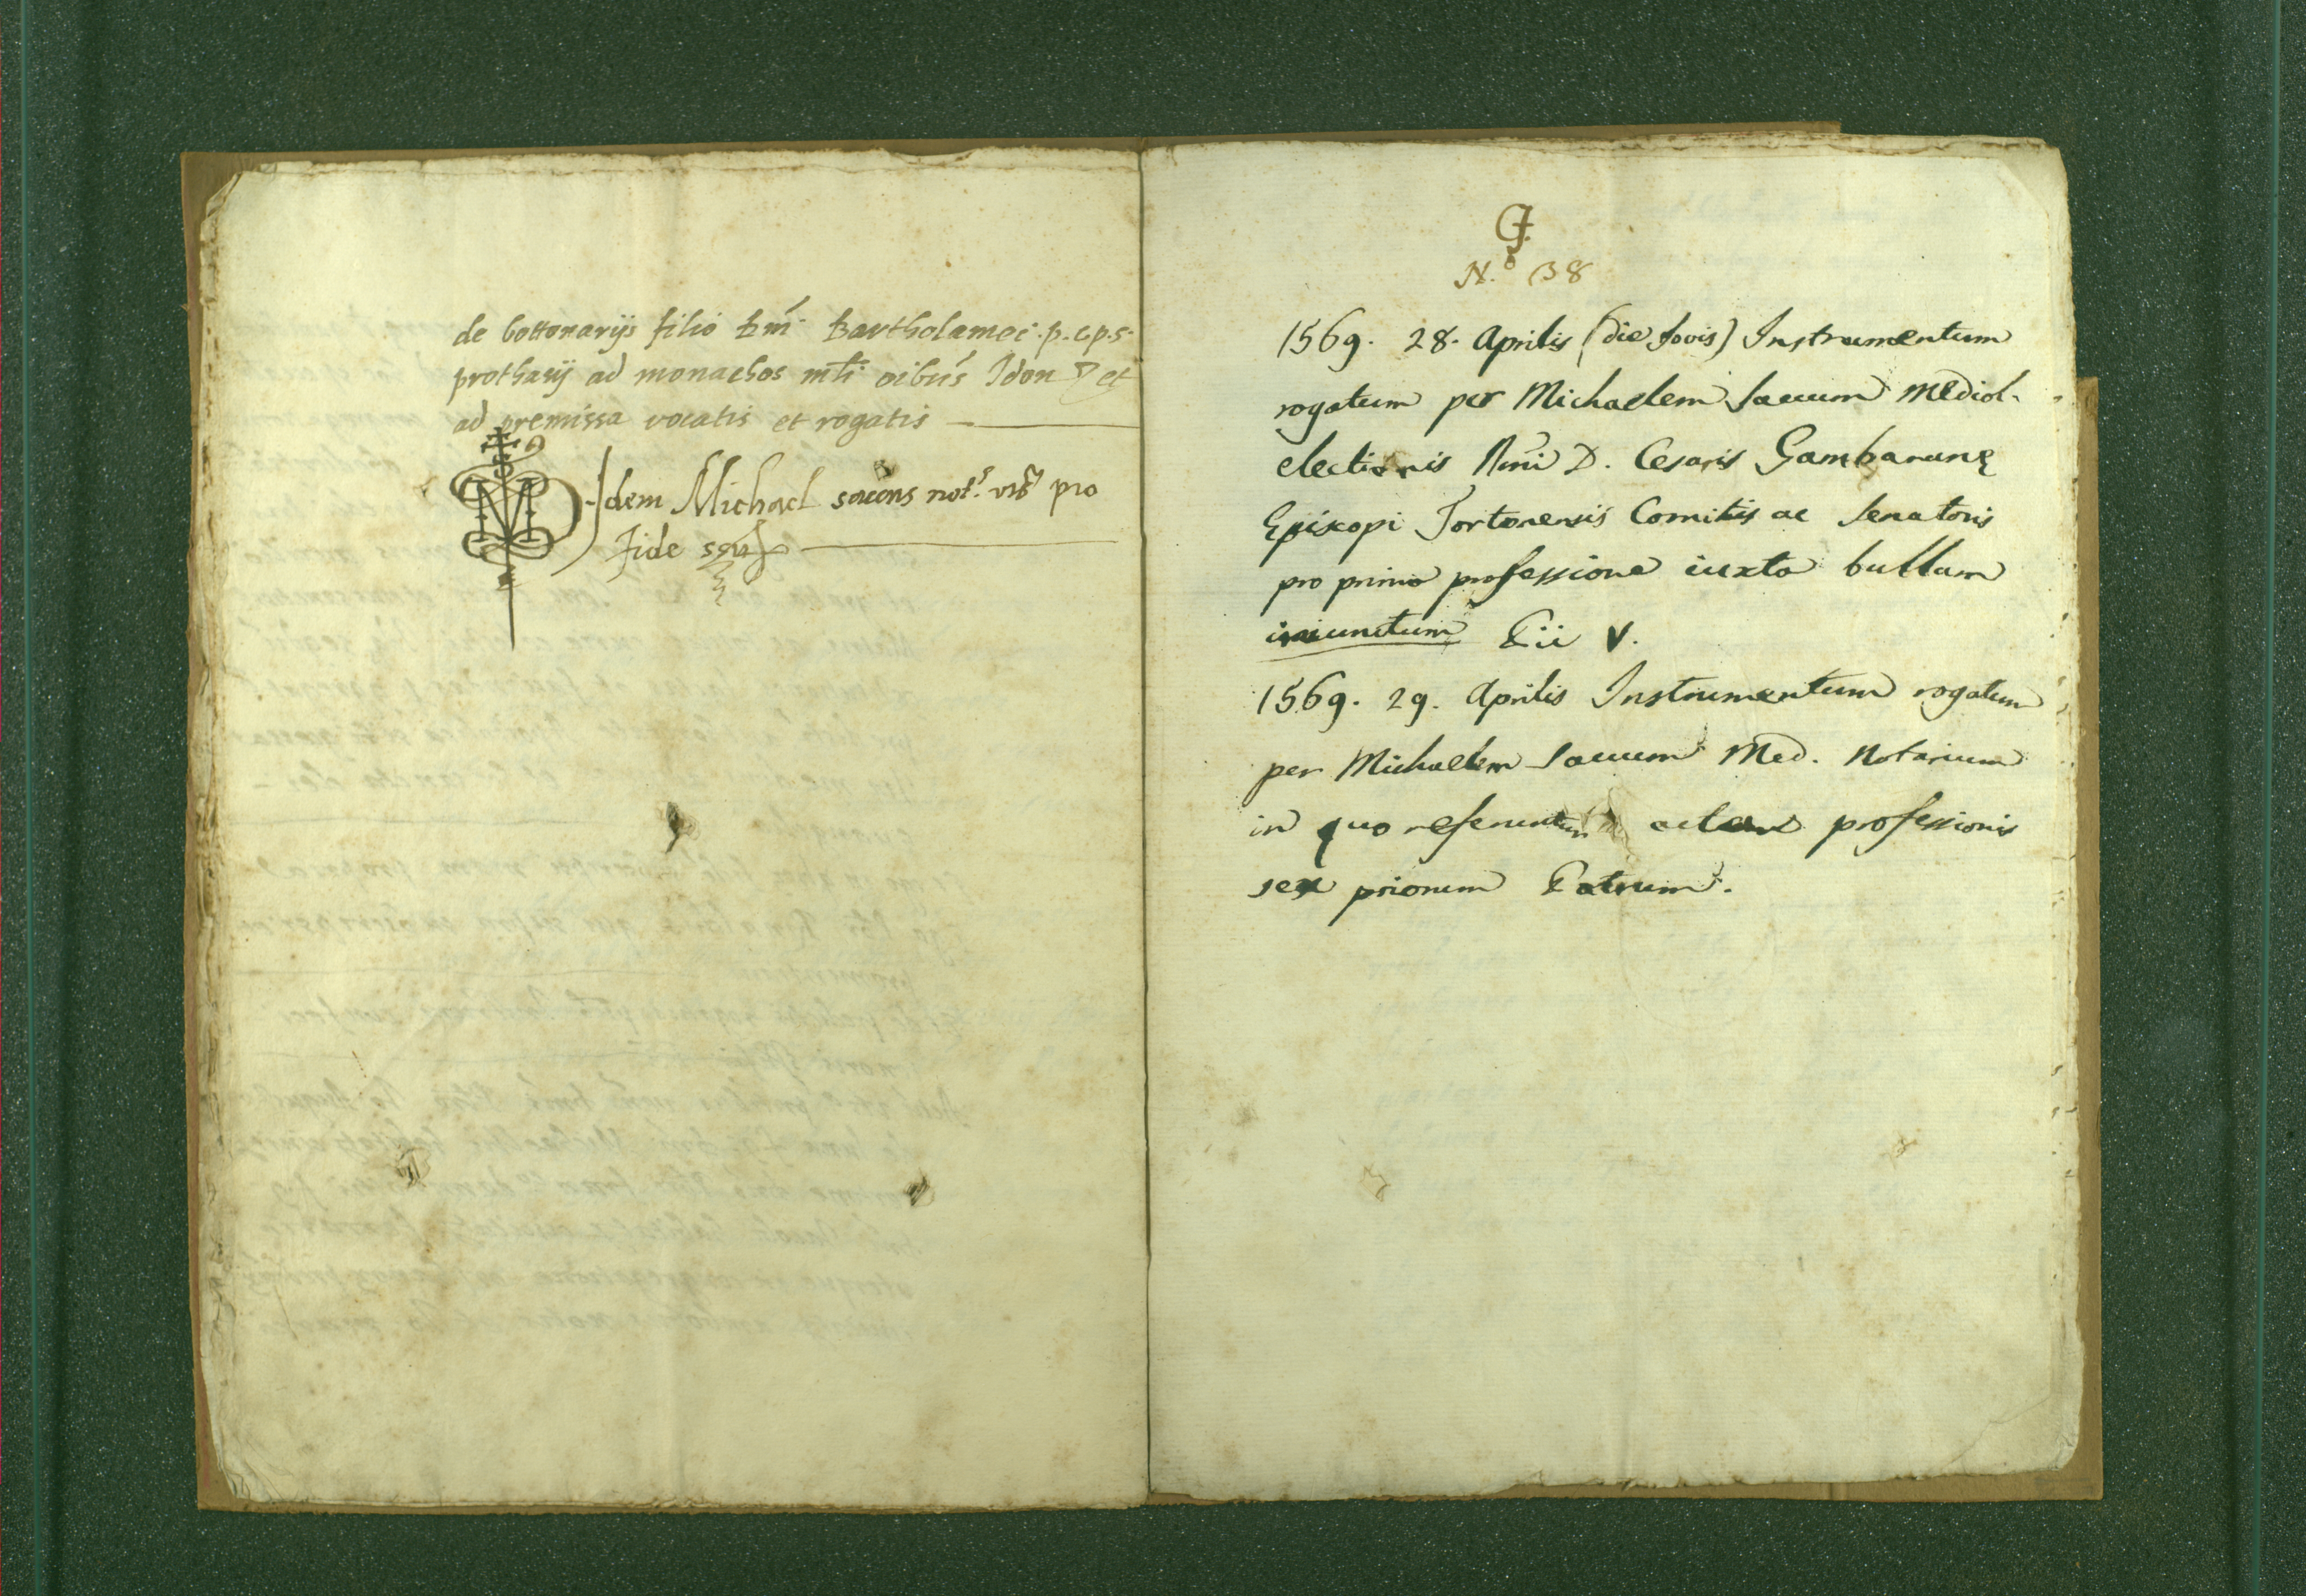 de bottonarijs filio dm̃. Bartholamei. p. c. p. s.
prothasij ad monachos mĩi oibus Idon et
ad premissa vocatis et rogatis
Idem Michael not. pro
fide
N.º 138
1569. 28. Aprilis (die Jovis) Instrumentum
rogatum per Michaelem Sauum Mediol.
electionis Rmi D. Cesaris Gambaranę
Episcopi Tortonensis Comitis ac Senatoris
pro prima professione iuxta bullam
Pii V.
1569. 29. Aprilis Instrumentum rogatum
per Michaelem Sauum Med. Notarium
in quo referuntur professionis
sex priorum Patrum.